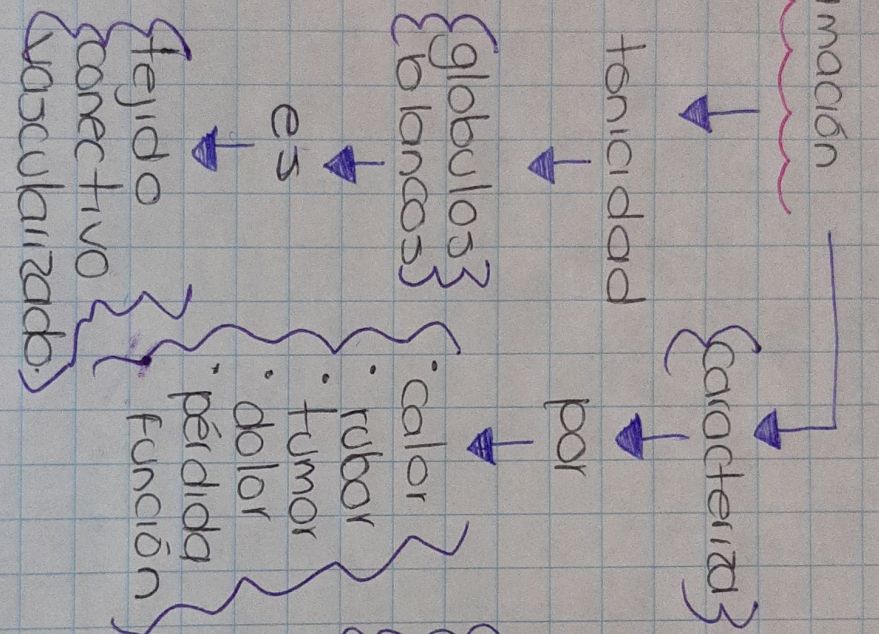 mación
tonicidad
globulos
blancos
es
tejido
conectivo
vascularizado.
Caracteriza
por
· calor
· rubor
· tumor
· dolor
· pérdida
función